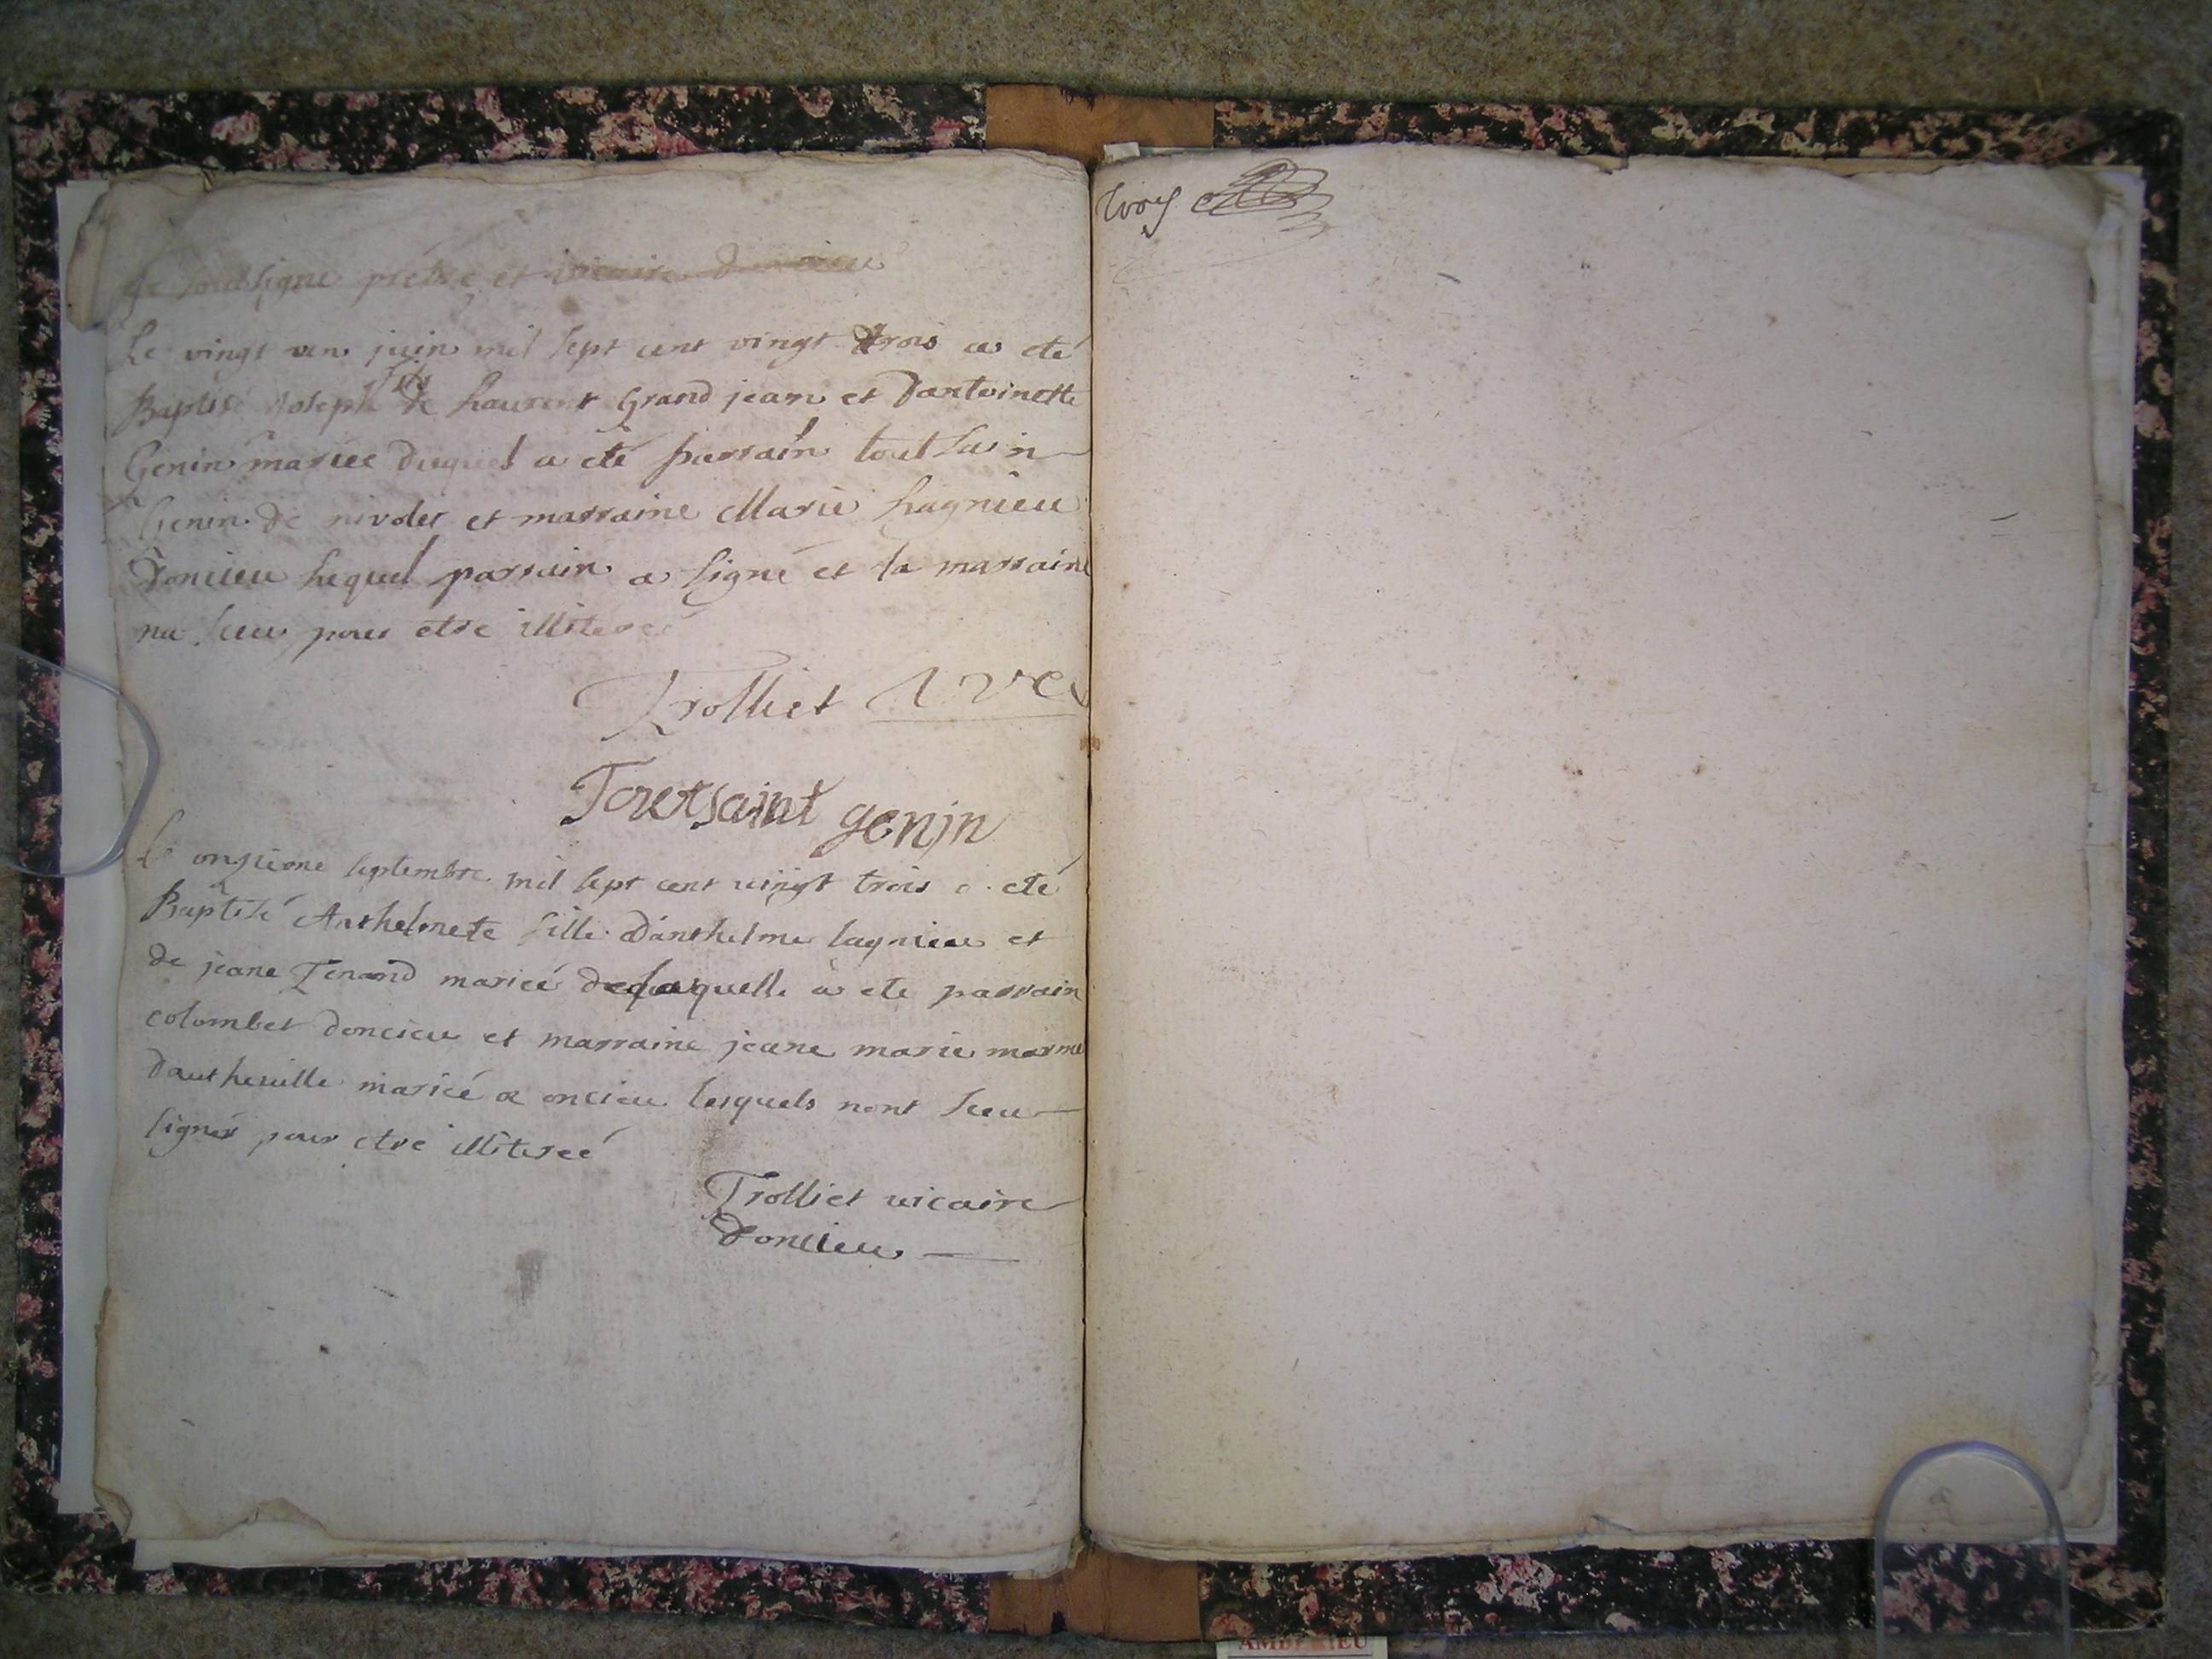 Je soubsigne prêtre et vicaire doncieu
Le vingt un juin mil sept cent vingt trois a eté
Baptisé Joseph fils de Laurent Grand jean et Dantoinette
Genin mariée duquel a eté parrain tout sain
Genin de nivolet et marraine Marie Lagnieu
Doncieu Lequel parrain a signé et la marraine
na sceu pour etre illiteréé
Trolliet
Toutsaint genin
Le onzieme septembre mil sept cent vingt trois a eté
Baptisé Anthelmete fille Danthelme lagnieu et
de jeane Tenand marieé de laquelle a ete parrain
colombet doncieu et marraine jeane marie
Dautheville marieé a oncieu lesquels nont sceu
signer pour etre illitereé
Trolliet vicaire
Doncieu